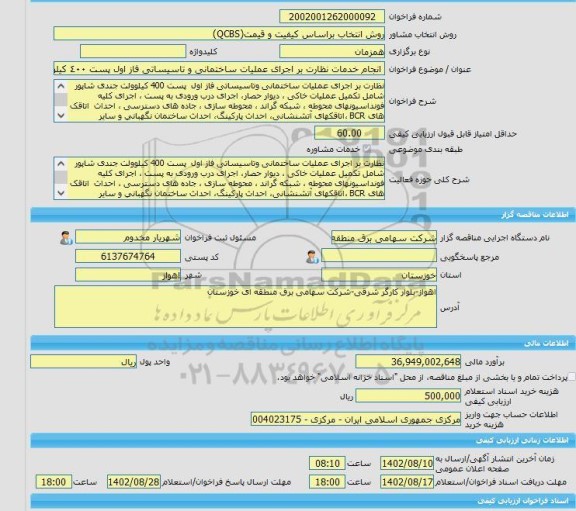 شماره فراخوان 2002001262000092
روش انتخاب مشاور روش انتخاب براساس کیفیت و قیمت(QCBS)
نوع برگزاری همزمان کلیدواژه
عنوان / موضوع فراخوان انجام خدمات نظارت بر اجرای عملیات ساختمانی و تاسیساتی فاز اول پست ٤٠٠
شرح فراخوان
نظارت بر اجرای عملیات ساختمانی وتاسیساتی فاز اول پست 400 کیلوولت جندی شاپور
شامل تکمیل عملیات خاکی ، دیوار حصار، اجرای درب ورودی به پست ، اجرای کلیه
فونداسیونهای محوطه ، شبکه گراند ، محوطه سازی ، جاده های دسترسی ، احداث اتاقک
های BCR ،اتاقکهای آتشنشانی، احداث پارکینگ، احداث ساختمان نگهبانی و سایر
حداقل امتیاز قابل قبول ارزیابی کیفی 60.00
طبقه بندی موضوعی خدمات مشاوره
شرح کلی حوزه فعالیت
نظارت بر اجرای عملیات ساختمانی وتاسیساتی فاز اول پست 400 کیلوولت جندی شاپور
شامل تکمیل عملیات خاکی ، دیوار حصار، اجرای درب ورودی به پست ، اجرای کلیه
فونداسیونهای محوطه ، شبکه گراند ، محوطه سازی ، جاده های دسترسی ، احداث اتاقک
های BCR ،اتاقکهای آتشنشانی، احداث پارکینگ، احداث ساختمان نگهبانی و سایر
اطلاعات مناقصه گزار
نام دستگاه اجرایی مناقصه گزار شرکت سهامی برق منطقه مسئول ثبت فراخوان شهریار مخدوم
مرجع پاسخگویی کد پستی 6137674764
استان خوزستان شهر اهواز
آدرس اهواز-بلوار کارگر شرقی-شرکت سهامی برق منطقه ای خوزستان
ParsNamadData
پایگاه اطلاع رسانی مناقصه و مزایده
۰۲۱-۸۸۳۴۹۶۷۰-۵
اطلاعات مالی
برآورد مالی 36,949,002,648 واحد پول ریال
پرداخت تمام و یا بخشی از مبلغ مناقصه، از محل "اسناد خزانه اسلامی" خواهد بود.
هزینه خرید اسناد استعلام ارزیابی کیفی 500,000 ریال
اطلاعات حساب جهت واریز هزینه خرید مرکزی جمهوری اسلامی ایران - مرکزی - 004023175
اطلاعات زمانی ارزیابی کیفی
زمان آخرین انتشار آگهی/ارسال به صفحه اعلان عمومی 1402/08/10 ساعت 08:10
مهلت دریافت اسناد فراخوان/استعلام 1402/08/17 ساعت 18:00 مهلت ارسال پاسخ فراخوان/استعلام 1402/08/28 ساعت 18:00
اسناد فراخوان ارزیابی کیفی